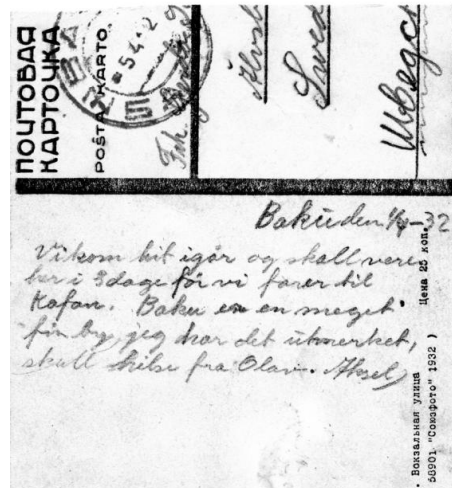 ПОЧТОВАЯ
КАРТОЧКА
POŜTA KARTO.
5.4.
Frk.
Swed
Шведс
Baku den 1/4-32
Vi kom hit igår og skall vere
her i 3 dage för vi farer til
Kafan. Baku er en meget
fin by, jeg har det utmerket,
skall hilse fra Olav. Aksel
Цена 25 коп.
Вокзальная улица
58901 "Союзфото" 1932 )